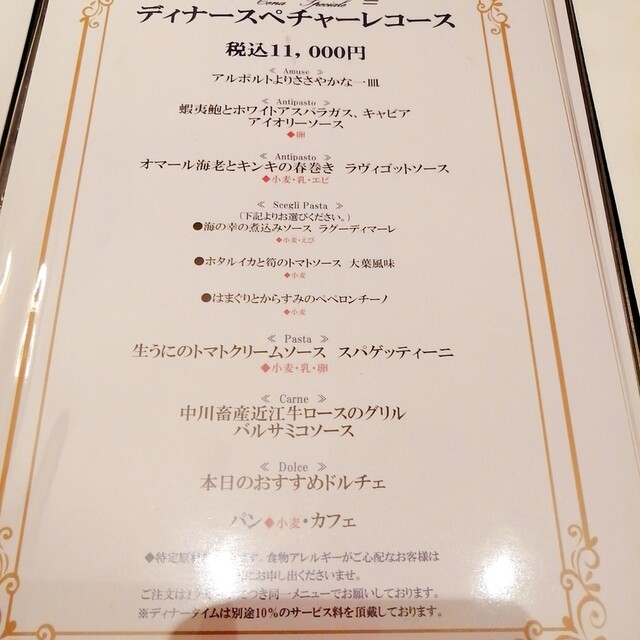 Cena Speciale
ディナースペチャーレコース
税込11，000円
≪ Amuse ≫
アルポルトよりささやかな一皿
≪ Antipasto ≫
蝦夷鮑とホワイトアスパラガス、キャビア
アイオリーソース
◆卵
≪ Antipasto ≫
オマール海老とキンキの春巻き ラヴィゴットソース
◆小麦・乳・エビ
≪ Scegli Pasta ≫
（下記よりお選びください。）
●海の幸の煮込みソース ラグーディマーレ
◆小麦・えび
●ホタルイカと筍のトマトソース 大葉風味
◆小麦
●はまぐりとからすみのペペロンチーノ
◆小麦
≪ Pasta ≫
生うにのトマトクリームソース スパゲッティーニ
◆小麦・乳・卵
≪ Carne ≫
中川畜産近江牛ロースのグリル
バルサミコソース
≪ Dolce ≫
本日のおすすめドルチェ
パン◆小麦・カフェ
◆特定原料 ます。食物アレルギーがご心配なお客様は
にお申し出くださいませ。
ご注文は つき同一メニューでお願いしております。
※ディナータイムは別途10％のサービス料を頂戴しております。